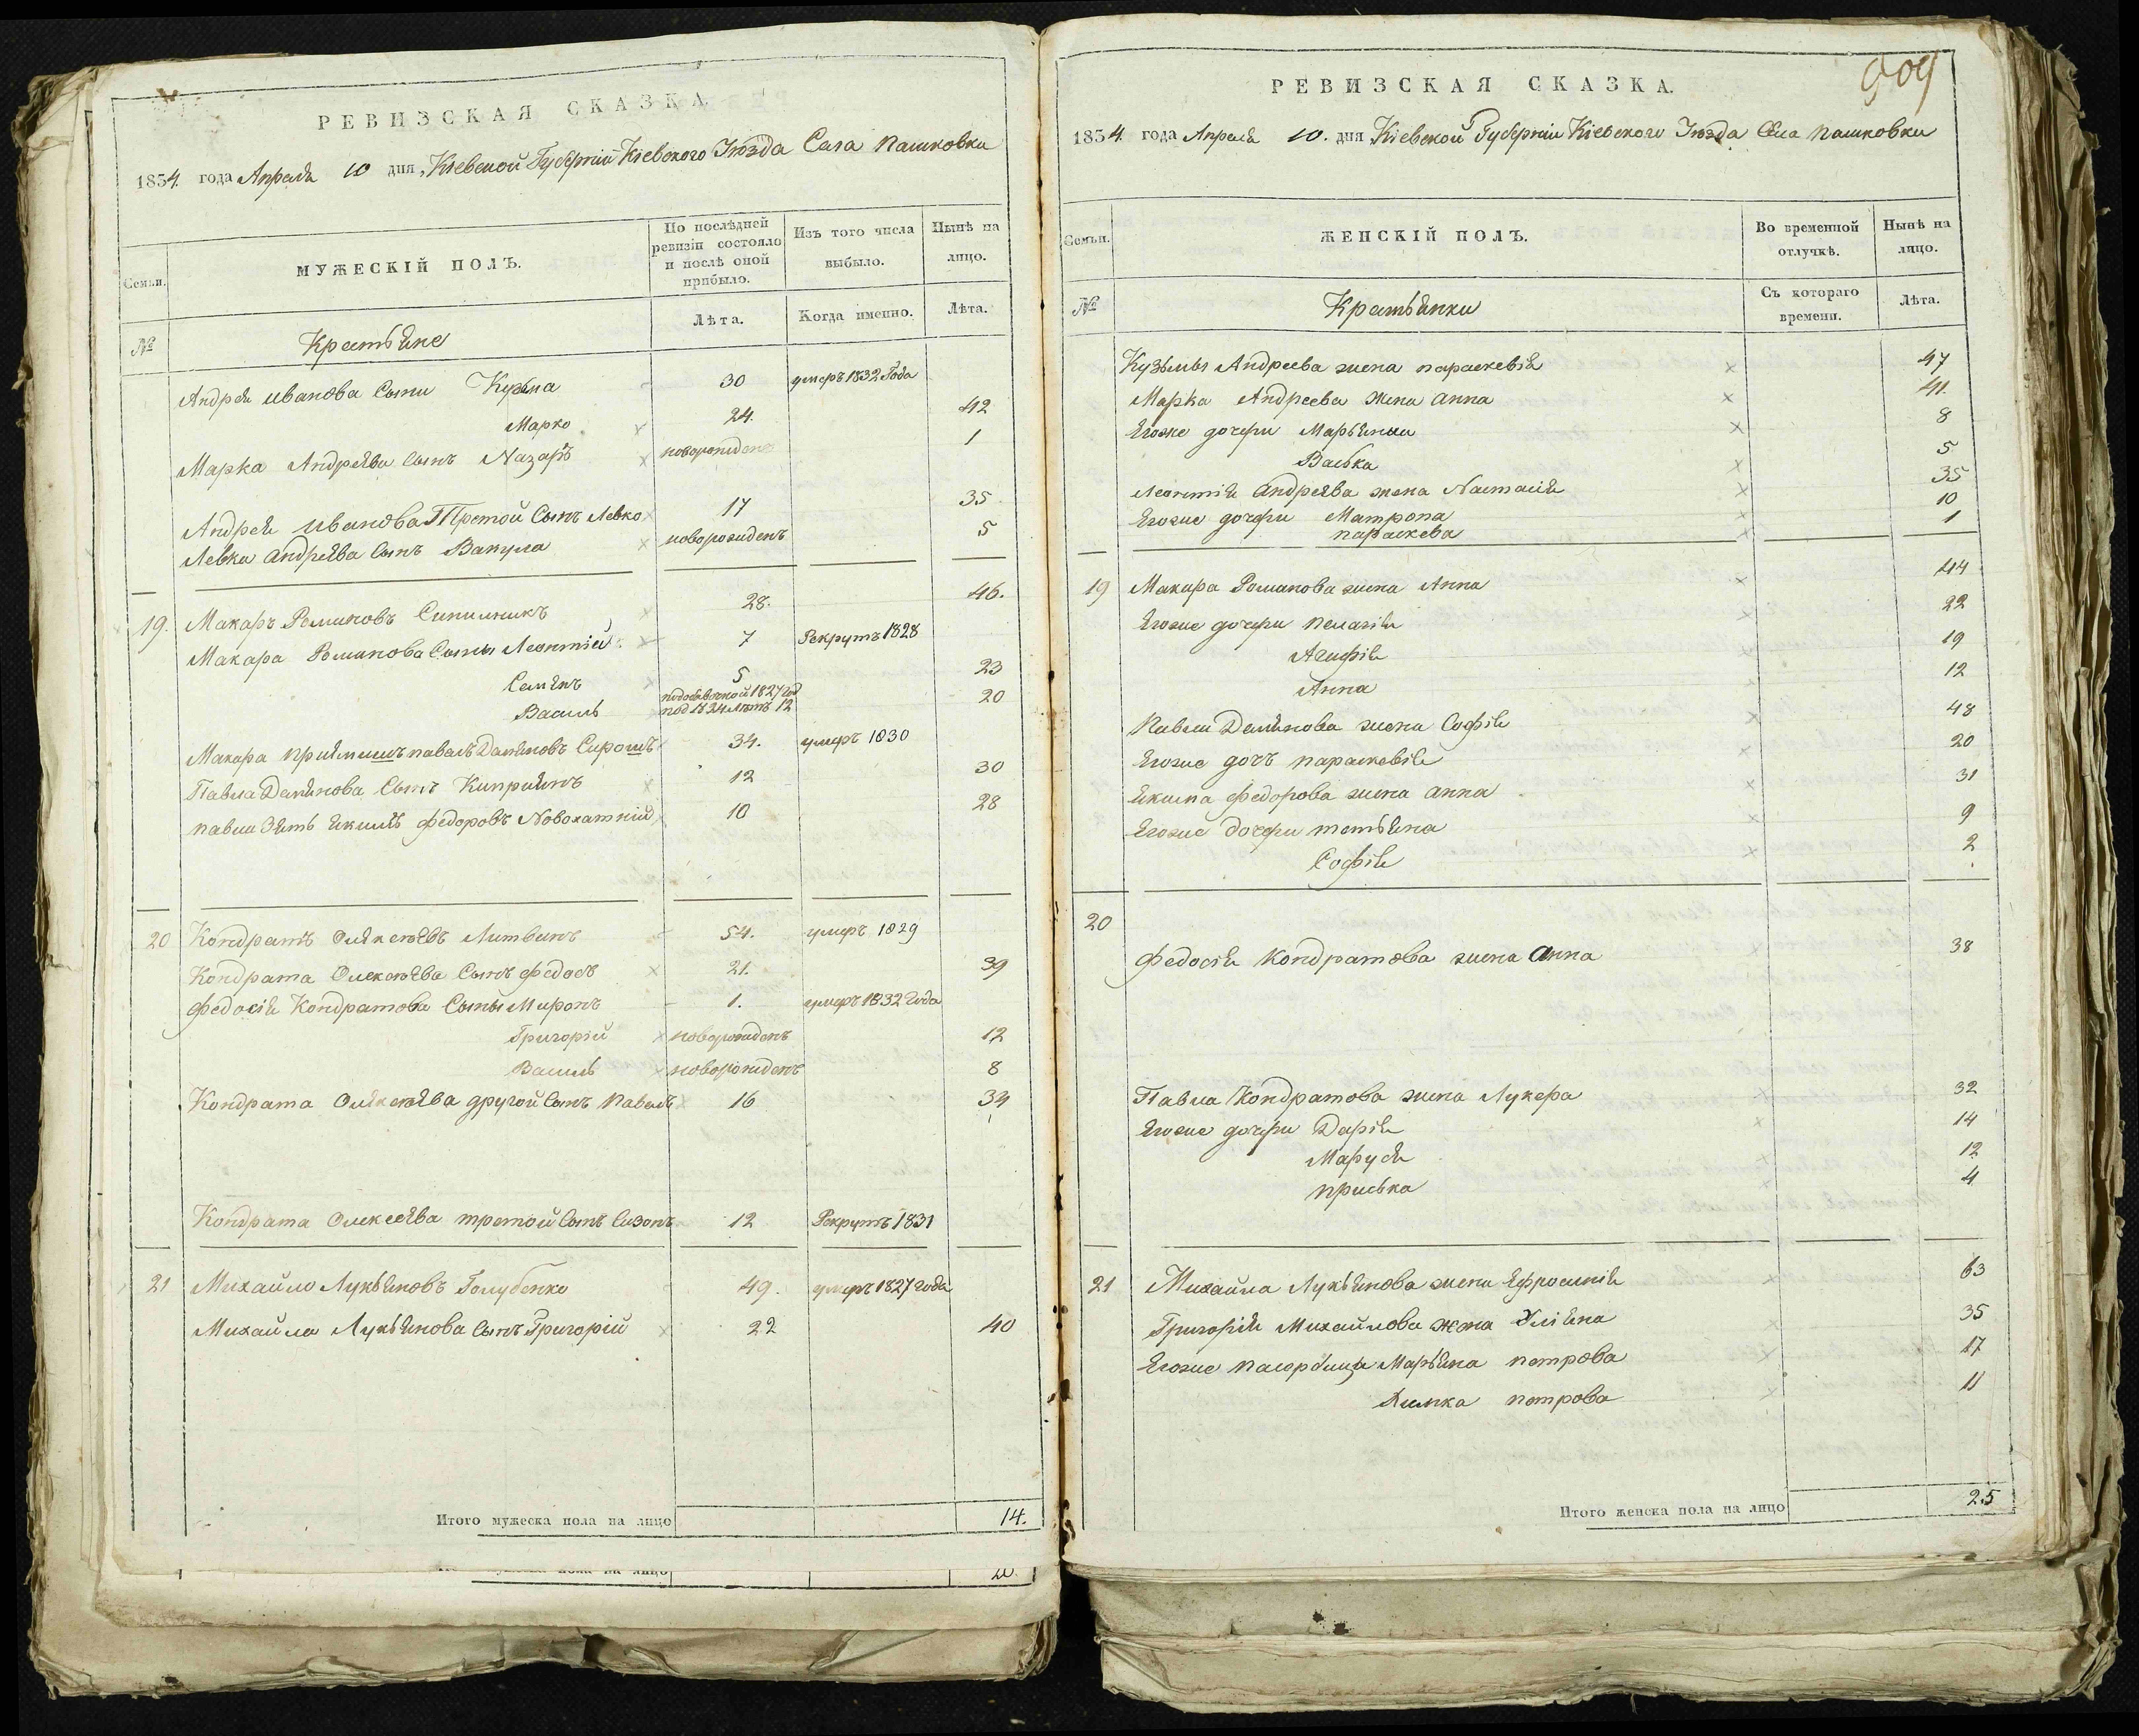 РЕВИЗСКАЯ СКАЗКА.
1834. года Апреля 10 дня, Кіевской Губерніи Кіевского Уѣзда Села Пашковки
Семьи.
МУЖЕСКІЙ ПОЛЪ.
По послѣдней ревизіи состояло и послѣ оной прибыло.
Изъ того числа выбыло.
Нынѣ на лицо.
№
Крестьяне
Лѣта.
Когда именно.
Лѣта.
Андрея иванова Сыни Кузьма 30 умеръ 1832 Года
Марко 24. 42
Марка Андреева Сынъ Назаръ новорожденъ 1
Андрея Иванова Третой Сынъ Левко 17 35
Левка Андреева Сынъ Вакула новорожденъ 5
19. Макаръ Романовъ 28. 46.
Макара Романова Сыны Леонтій 7 Рекрутъ 1828
Семенъ 5 23
Василь 1827 год 20
под 1834 летъ 12
Макара приемишъ павелъ Дамяновъ Сирошъ 34. умеръ 1830
Павла Дамянова Сынъ Киприянъ 12 30
павла Зять Якимъ федоровъ Новохатній 10 28
20 Кондратъ Олексѣевъ Литвинъ 54. умеръ 1829
Кондрата Олексѣева Сынъ федосъ 21. 39
федосія Кондратова Сыны Миронъ 1. умеръ 1832 Года
Григорій новорожденъ 12
Василь новорожденъ 8
Кондрата Олексѣева другой Сынъ павелъ 16 34
Кондрата Олексеева третой Сынъ Сизонъ 12 Рекрутъ 1831
21 Михайло Лукьяновъ Голубенко 49. умеръ 1827 года
Михайла Лукьянова Сынъ Григорій 22 40
Итого мужеска пола на лицо 14.
пола на лицо
909
РЕВИЗСКАЯ СКАЗКА.
1834 года Апреля 10. дня Кіевской Губерніи Кіевского Уѣзда Села Пашковки
Семьи.
ЖЕНСКІЙ ПОЛЪ.
Во временной отлучкѣ.
Нынѣ на лицо.
№
Крестьянки
Съ котораго времени.
Лѣта.
Кузьмы Андреева жена параскевія 47
Марка Андреева жена анна 41.
Егоже дочери Марьяна 8
Васька 5
Леонтія андреева жена Настасія 35
Егоже дочери Матрона 10
параскева 1
19 Макара Романова жена Анна 44
Егоже дочери пелагія 22
Агафія 19
Анна 12
Павла Дамянова жена Софія 48
Егоже дочъ параскевія 20
Якима федорова жена анна 31
Егоже дочери тетьяна 9
Софія 2
20
федосія кондратова жена анна 38
Павла Кондратова жена Лукера 32
Егоже дочери Дарія 14
Маруся 12
приська 4
21 Михайла Лукьянова жена Ефросинія 63
Григорія Михайлова жена Уліяна 35
Егоже Марьяна петрова 17
Димка петрова 11
Итого женска пола на лицо 25